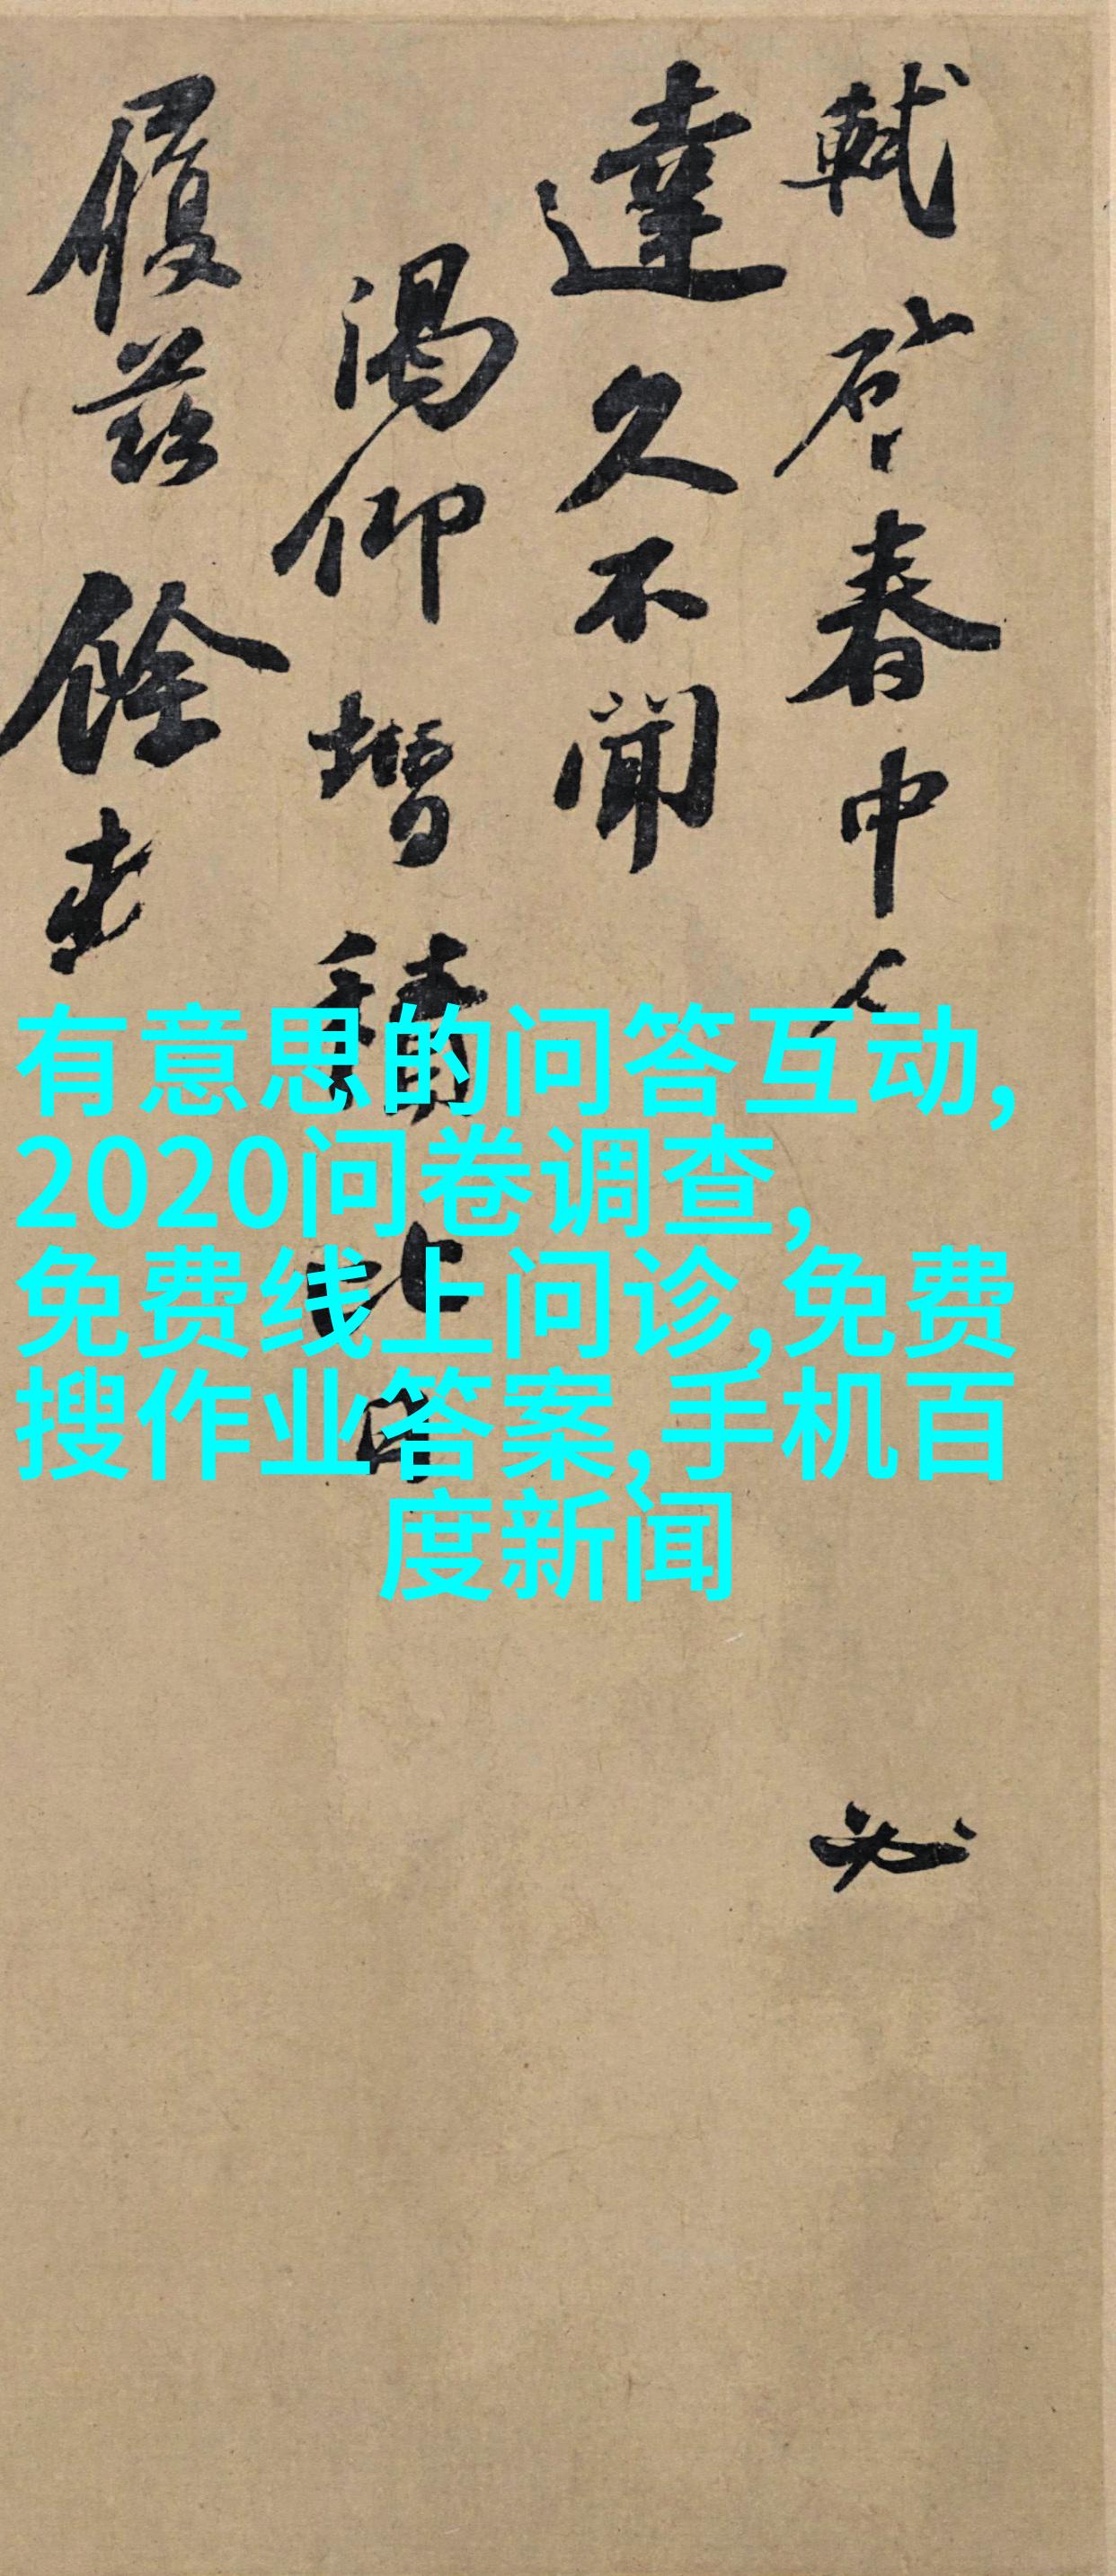 軾啓春中人必
達久不聞
渴仰增積比日
履茲餘
有意思的问答互动,
2020问卷调查,
免费线上问诊,免费
搜作业答案,手机百
度新闻